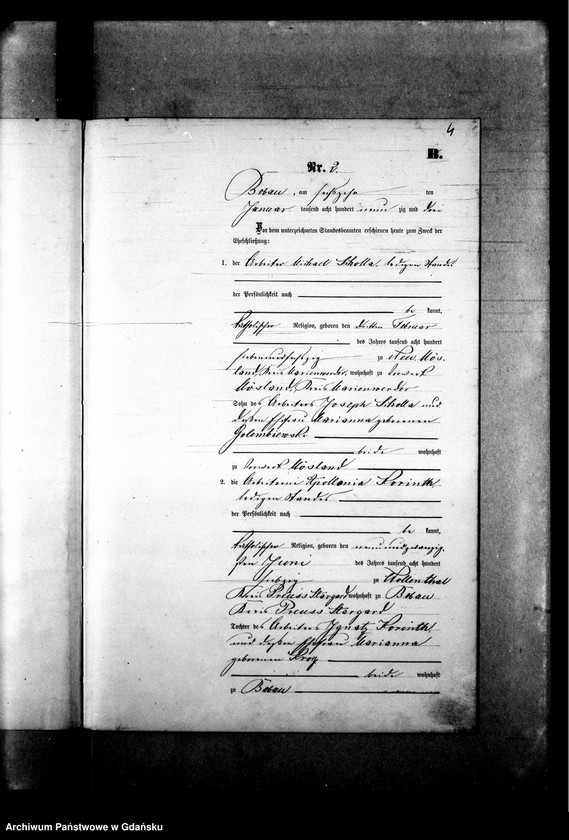 4
B.
Nr. 2.
Bobau, am sechszehn ten
Januar tausend acht hundert neun zig und drei
Vor dem unterzeichneten Standesbeamten erschienen heute zum Zweck der
Eheschließung:
1. der Arbeiter Michael Scholla, ledigen Standes
der Persönlichkeit nach
be kannt,
katholischer Religion, geboren den dritten Februar
des Jahres tausend acht hundert
siebenundsechszig zu Neu Mös-
land, Kreis Marienwerder, wohnhaft zu Vorwerk
Mösland, Kreis Marienwerder
Sohn des Arbeiters Joseph Scholla und
dessen Ehefrau Marianna geborenen
Golembiewski
beide wohnhaft
zu Vorwerk Mösland
2. die Arbeiterin Apollonia Korinth
ledigen Standes
der Persönlichkeit nach
be kannt,
katholischer Religion, geboren den neunundzwanzig-
sten Juni des Jahres tausend acht hundert
siebzig zu Wollenthal
Kreis Preuss Stargard wohnhaft zu Bobau
Kreis Preuss Stargard
Tochter des Arbeiters Ignatz Korinth
und dessen Ehefrau Marianna
geborenen
beide wohnhaft
zu Bobau
Archiwum Państwowe w Gdańsku